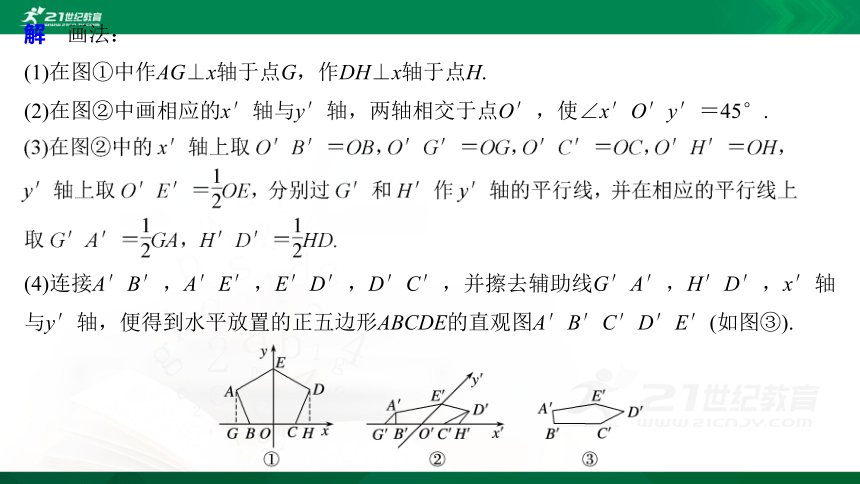 21世纪教育
解 画法：
(1)在图①中作AG⊥x轴于点G，作DH⊥x轴于点H.
(2)在图②中画相应的x′轴与y′轴，两轴相交于点O′，使∠x′O′y′＝45°.
(3)在图②中的x′轴上取O′B′＝OB，O′G′＝OG，O′C′＝OC，O′H′＝OH，
y′轴上取O′E′＝1/2OE，分别过G′和H′作y′轴的平行线，并在相应的平行线上
取G′A′＝1/2GA，H′D′＝1/2HD.
(4)连接A′B′，A′E′，E′D′，D′C′，并擦去辅助线G′A′，H′D′，x′轴
与y′轴，便得到水平放置的正五边形ABCDE的直观图A′B′C′D′E′(如图③).
y E A D G B O C H x ①
y′ E′ A′ D′ G′ B′ O′ C′ H′ x′ ②
E′ A′ D′ B′ C′ ③
21世纪教育
WWW.21CNJY.COM